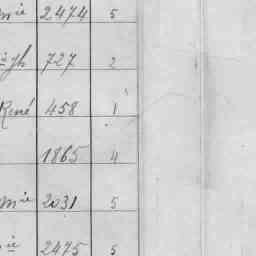 mie 2474 5
727 2
René 458 1
1865 4
mie 2031 5
ie 2475 5